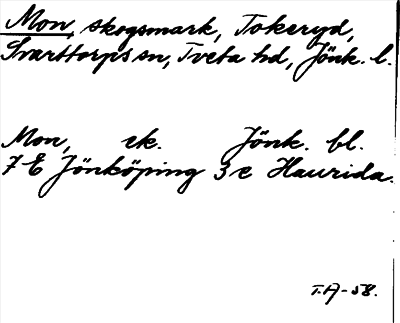 Mon, skogsmark, Tokeryd,
Svarttorps sn, Tveta hd, Jönk. l.
Mon, ek. Jönk. bl.
7 E Jönköping 3 e Haurida.
T.A-58.